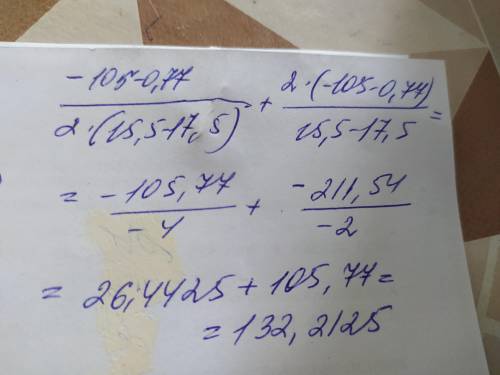 -105-0,77 / 2·(15,5-17,5) + 2·(-105-0,77) / 15,5-17,5 =
= -105,77 / -4 + -211,54 / -2
= 26,4425 + 105,77 =
= 132,2125